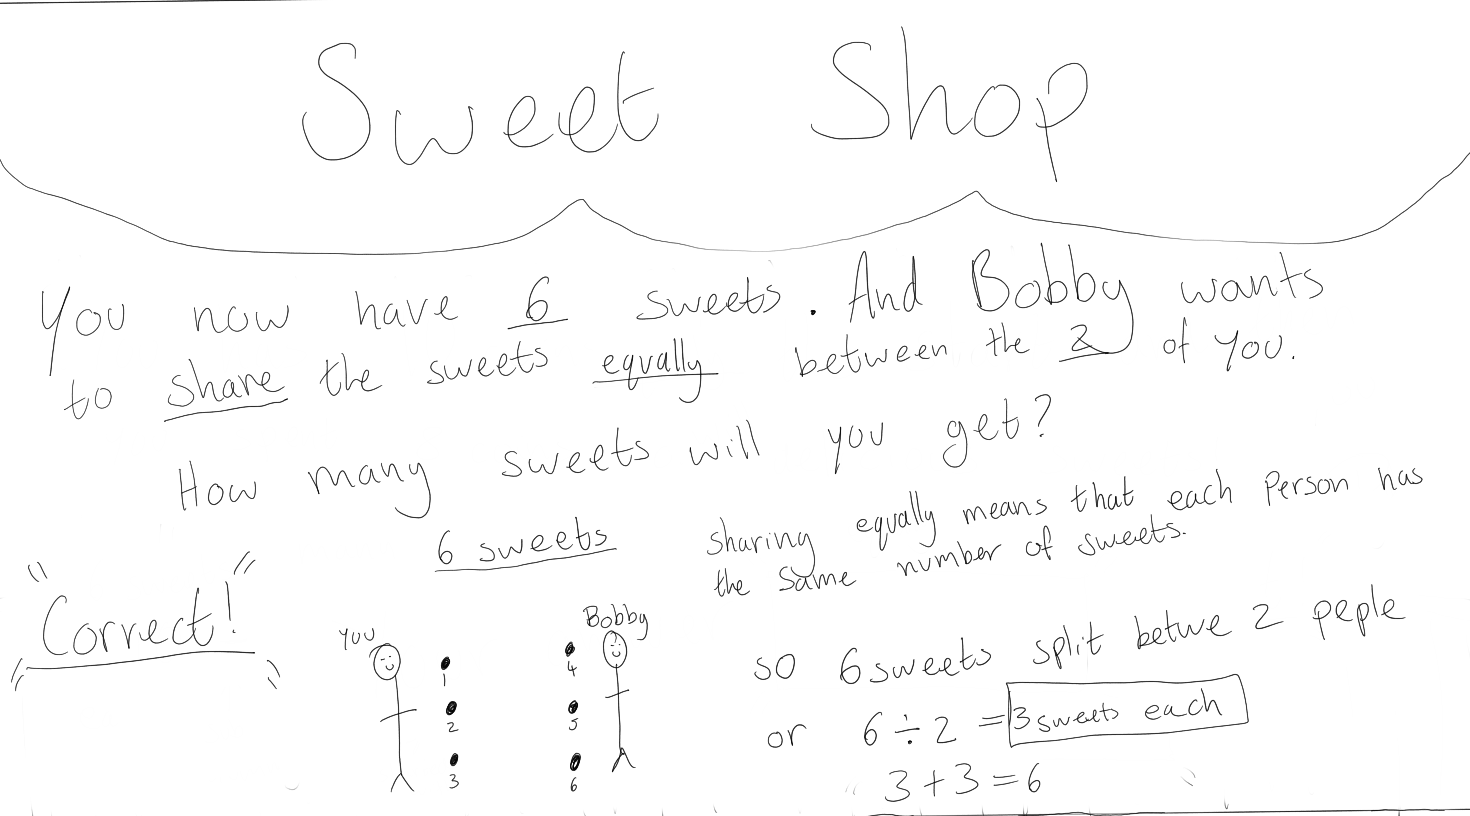 Sweet Shop
You now have 6 sweets. And Bobby wants
to share the sweets equally between the 2 of you.
How many sweets will you get?
6 sweets
sharing equally means that each person has
the same number of sweets.
Correct!
You
Bobby
1
2
3
4
5
6
so 6 sweets split betwe 2 peple
or 6 ÷ 2 = 3 sweets each
3 + 3 = 6